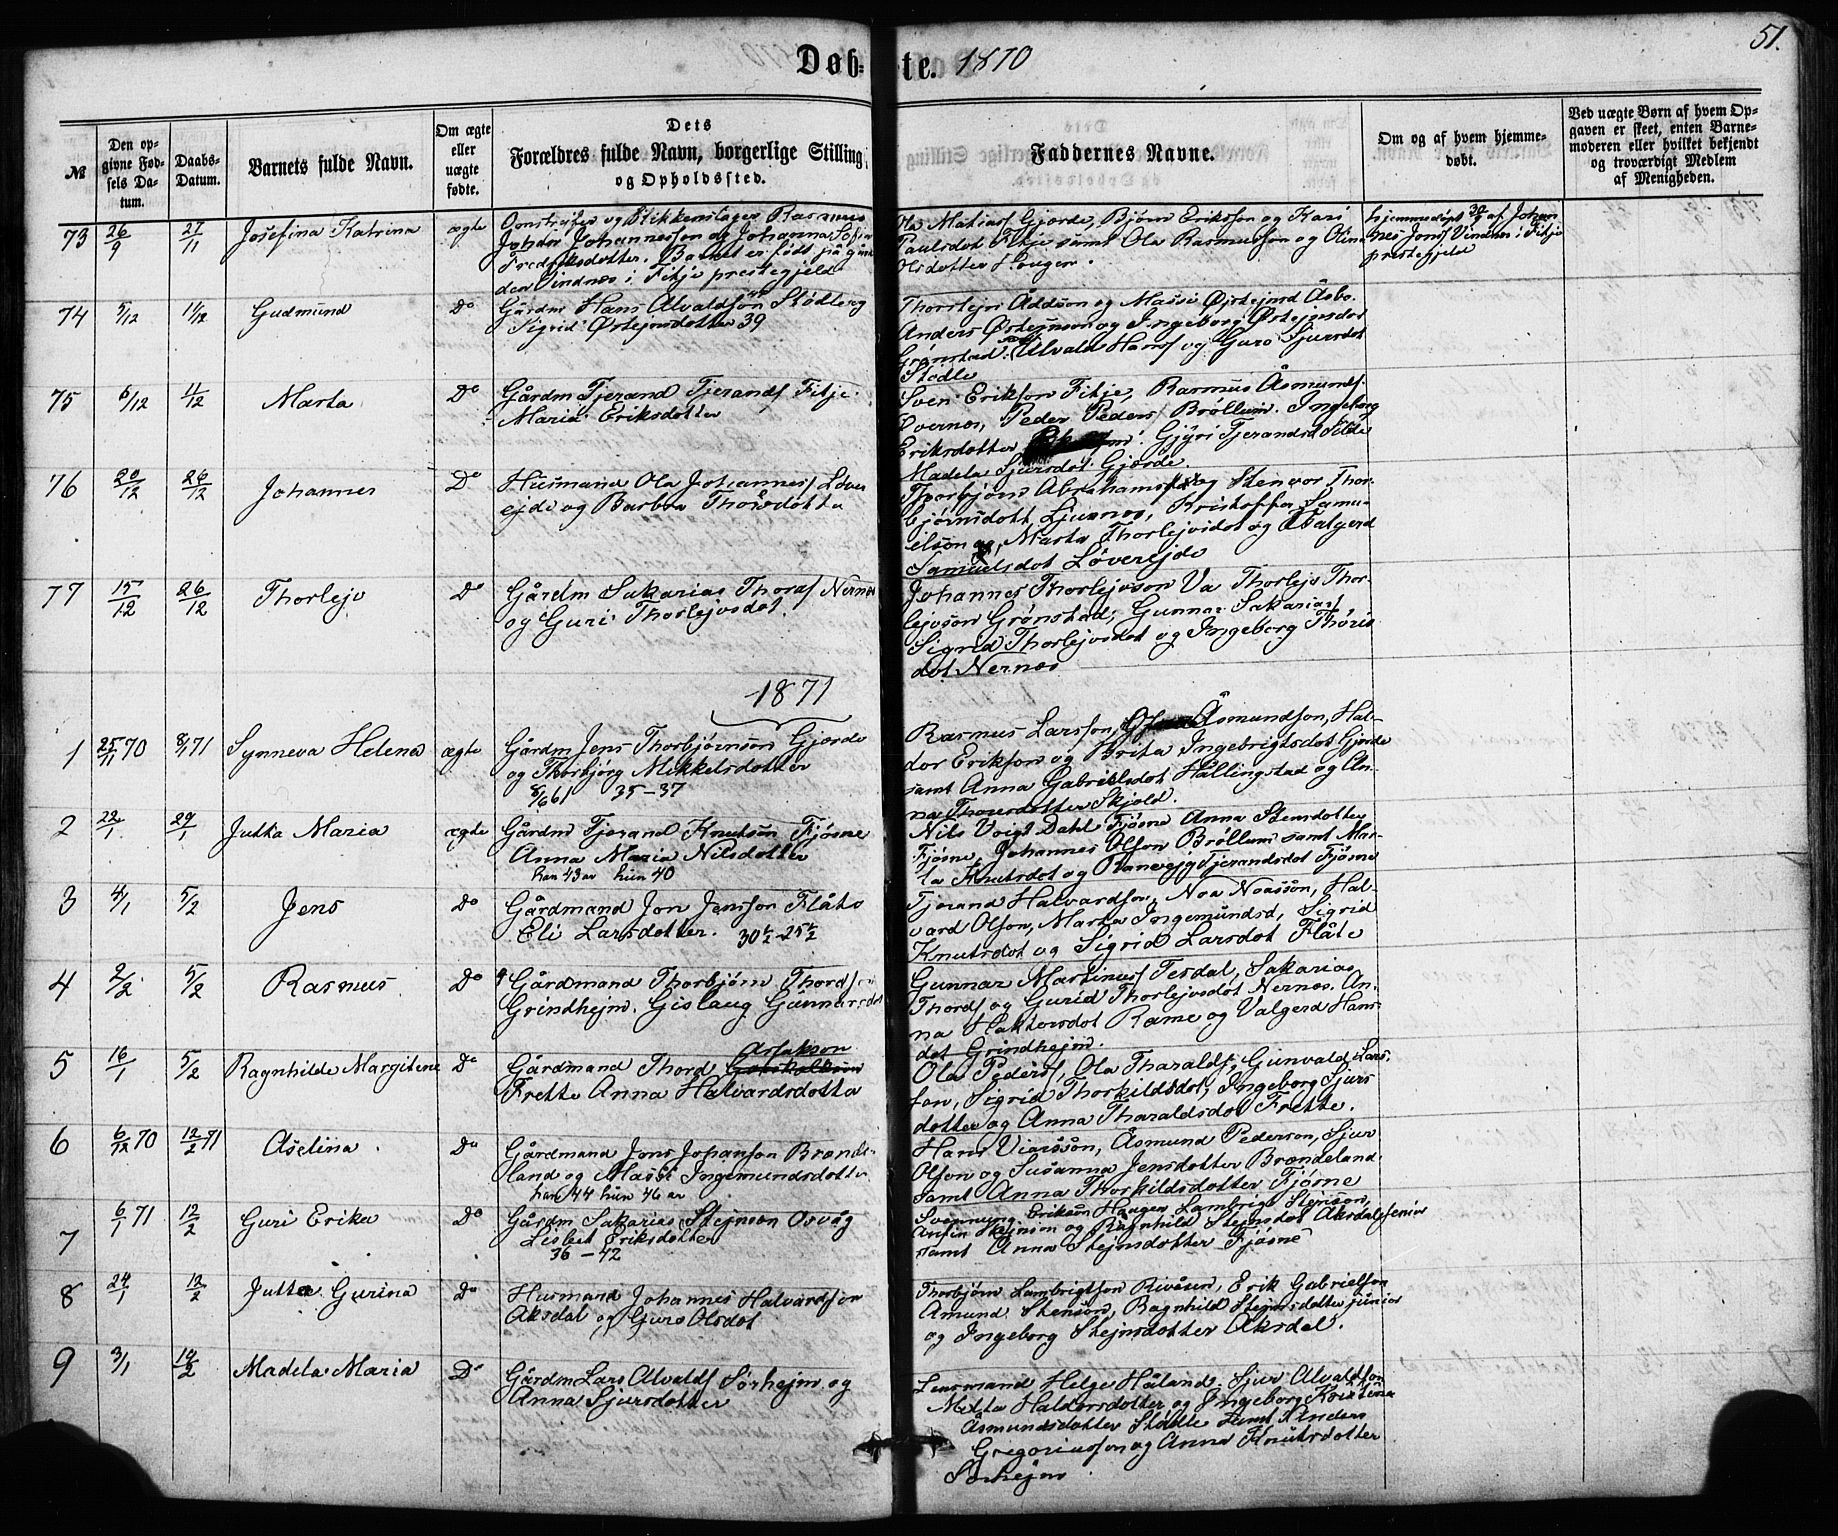 51.
Døbte. 1870
№
Den opgivne Fødsels Datum.
Daabs-Datum.
Barnets fulde Navn.
Om ægte eller uægte fødte.
Dets Forældres fulde Navn, borgerlige Stilling og Opholdssted.
Faddernes Navne.
Om og af hvem hjemmedøbt.
Ved uægte Børn af hvem Opgaven er skeet, enten Barnemoderen eller hvilket bekjendt og troværdigt Medlem af Menigheden.
73 26/9 27/11 Josefina Katrina ægte
Rasmus
Johan Johannessen og Johanna Sofia
Fredriksdotter. Barnet er født på går
den Vindnes i Fitje prestegjeld
Ola Matiass Gjærde, Bjørn Erikssøn og Kari
Paulsdot Fitje samt Ola Rasmussøn og Olina
Olsdotter Haugen.
hjemmedøpt 30/9 af Johan
nes Jonss Vindnes i Fitje
prestegjeld
74 5/12 11/12 Gudmund Do
Gårdm Hans Alvaldsøn Stødle og
Sigrid Østejnsdotter 39
Thorlejv Åddsøn og Massi Østejnsd Åsbo.
Anders Østejnsøn og Ingeborg Østejnsdot
Grønstad. Alvald Hanss og Guro Sjursdot
Stødle
75 6/12 11/12 Marta Do
Gårdm Tjerand Tjerands Fitje.
Maria Eriksdotter
Sven Eriksøn Fitje, Rasmus Åsmunds.
Øvernes, Peder Peders Brøllum. Ingeborg
Eriksdotter Gjyri Tjerandsd Silde
Madela Sjursdot Gjærde.
76 20/12 26/12 Johannes Do
Husmand Ola Johanness Løver
ejde og Barbra Thorsdotter
Thorbjørn Abrahams og Stenvor Thor-
bjørnsdott Ljusnes, Kristoffer Samu-
elsøn og Marta Thorlejvsdot og Valgerd
Samuelsdot Løverejde
77 15/12 26/12 Thorlejv Do
Gårdm Sakarias Thords Nernes
og Guri Thorlejvsdot.
Johannes Thorlejvsøn Va Thorlejv Thor-
lejvsøn Grønstad, Gunnar Sakarias,
Sigrid Thorlejvsdot og Ingeborg Thoris
dot Nernes
1871
1 25/11 70 8/1 71 Synneva Helena ægte
Gårdm Jens Thorbjørnsøn Gjærde
og Thorbjørg Mikkelsdotter
8/6 61 35-37
Rasmus Larssøn, Åsmundsøn, Hal-
dor Eriksøn og Brita Ingebrigtsdot Gjærde
samt Anna Gabrielsdot Hallingstad og An-
na Thorersdotter Skjold.
2 22/1 29/1 Jutta Maria ægte
Gårdm Tjerand Knutsøn Fjøsne
Anna Maria Nilsdotter
han 43 ar hun 40
Nils Voigt Dahl Fjøsne Anna Stensdotter
Fjøsne, Johannes Olsøn Brøllum samt Mar-
ta Knutsdot og Ranvejg Tjerandsdot Fjøsne
3 4/1 5/2 Jens Do
Gårdmand Jon Jenssøn Flåte
Eli Larsdotter. 30½-25½
Tjerand Halvardsøn, Noa Noassøn, Hal-
vard Olsøn, Marta Ingemundsd, Sigrid
Knutsdot og Sigrid Larsdot Flåte
4 2/2 5/2 Rasmus Do
Gårdmand Thorbjørn Thordsøn
Grindhejm. Gislaug Gunnarsdot
Gunnar Martinus Tesdal, Sakarias
Thords og Gurid Thorlejvsdot Nernes. An-
na Haktorsdot Rame og Valgerd Hans-
dot Grindhejm.
5 16/1 5/2 Ragnhilde Margitene Do
Gårdmand Thord Aslakson
Frette Anna Halvardsdotter
Ola Peders, Ola Tharalds, Gunvald Lars-
søn, Sigrid Thorkildsdot, Ingeborg Sjurs
dotter og Anna Tharaldsdot Frette.
6 6/12 70 12/2 71 Aselina Do
Gårdmand Jens Johansøn Brænde-
land og Massi Ingemundsdotter
han 44 hun 46 ar
Hans Viarssøn, Åsmund Pedersøn, Sjur
Olsøn og Susanna Jensdotter Brændeland
samt Anna Thorkildsdotter Fjøsne
7 6/1 71 12/2 Guri Erika Do
Gårdm Sakarias Stejnsøn Osvåg
Lisbet Eriksdotter
36-42
Svennung Eriksøn Haugen Lambrigt Stejnsøn,
Anfin Stejnsøn og Ragnhild Stejnsdot Aksdal senior
samt Anna Stejnsdotter Fjøsne
8 24/1 12/2 Jutta Gurina Do
Husmand Johannes Halvardsøn
Aksdal og Guro Olsdot
Thorbjørn Lambrigtsøn Rivåsen, Erik Gabrielsøn
Amund Stensøn, Ragnhild Stejnsdotter junior
og Ingeborg Stejnsdotter Aksdal.
9 3/1 19/2 Madela Maria Do
Gårdm Lars Alvalds Sørhejm og
Anna Sjursdotter
Lensmand Helge Håland, Sjur Alvaldsøn
Metta Haldorsdotter og Ingeborg Kristina
Åsmundsdotter Stødle samt Anders
Gregoriussøn og Anna Knutsdotter
Sørhejm.